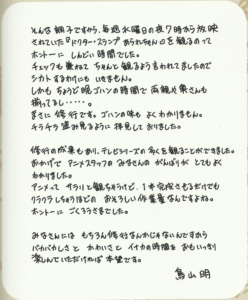 そんな調子ですから、毎週水曜日の夜7時から放映
されていた「ドクター・スランプ あられちゃん」を観るのって
ホントーにしんどい時間でした。
チェックも兼ねて ちゃんと観るよう言われてましたので
シカトするわけにも いきません。
しかも ちょうど晩ゴハンの時間で 両親や奥さんも
揃ってるし・・・・・。
まさに 修行です。ゴハンの味も よくわかりません。
チラチラ 盗み見るように 拝見しておりました。
修行の成果もあり、テレビシリーズの 多くを観ることができました。
おかげで アニメスタッフの みなさんの がんばりが とても よく
わかりました。
アニメって サラリと観ちゃうけど、1本完成させるだけでも
クラクラしちゃうほどの おそろしい作業量なんですよね。
ホントーに ごくろうさまでした。
みなさんには もちろん修行なんかじゃないんですから
バカバカしさと かわいさと イナカの時間を おもいっきり
楽しんでいただければ 本望です。
鳥山 明